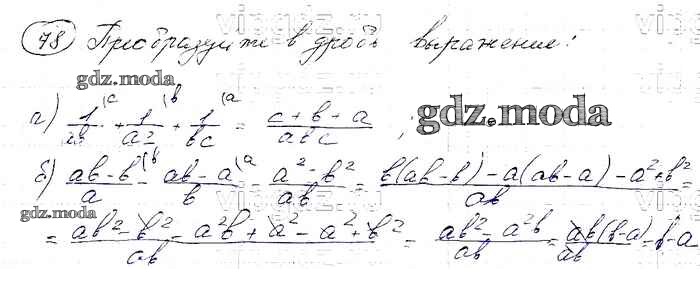 78 Преобразуйте в дробь выражение:
gdz.moda
а) 1/ab (c + 1/ac (b + 1/bc (a = c+b+a/abc ; gdz.moda
б) ab-b/a (b - ab-a/b (a - a²-b²/ab = b(ab-b)-a(ab-a)-a²+b²/ab =
gdz.moda
= ab²-b²-a²b+a²-a²+b²/ab = ab²-a²b/ab = ab(b-a)/ab = b-a